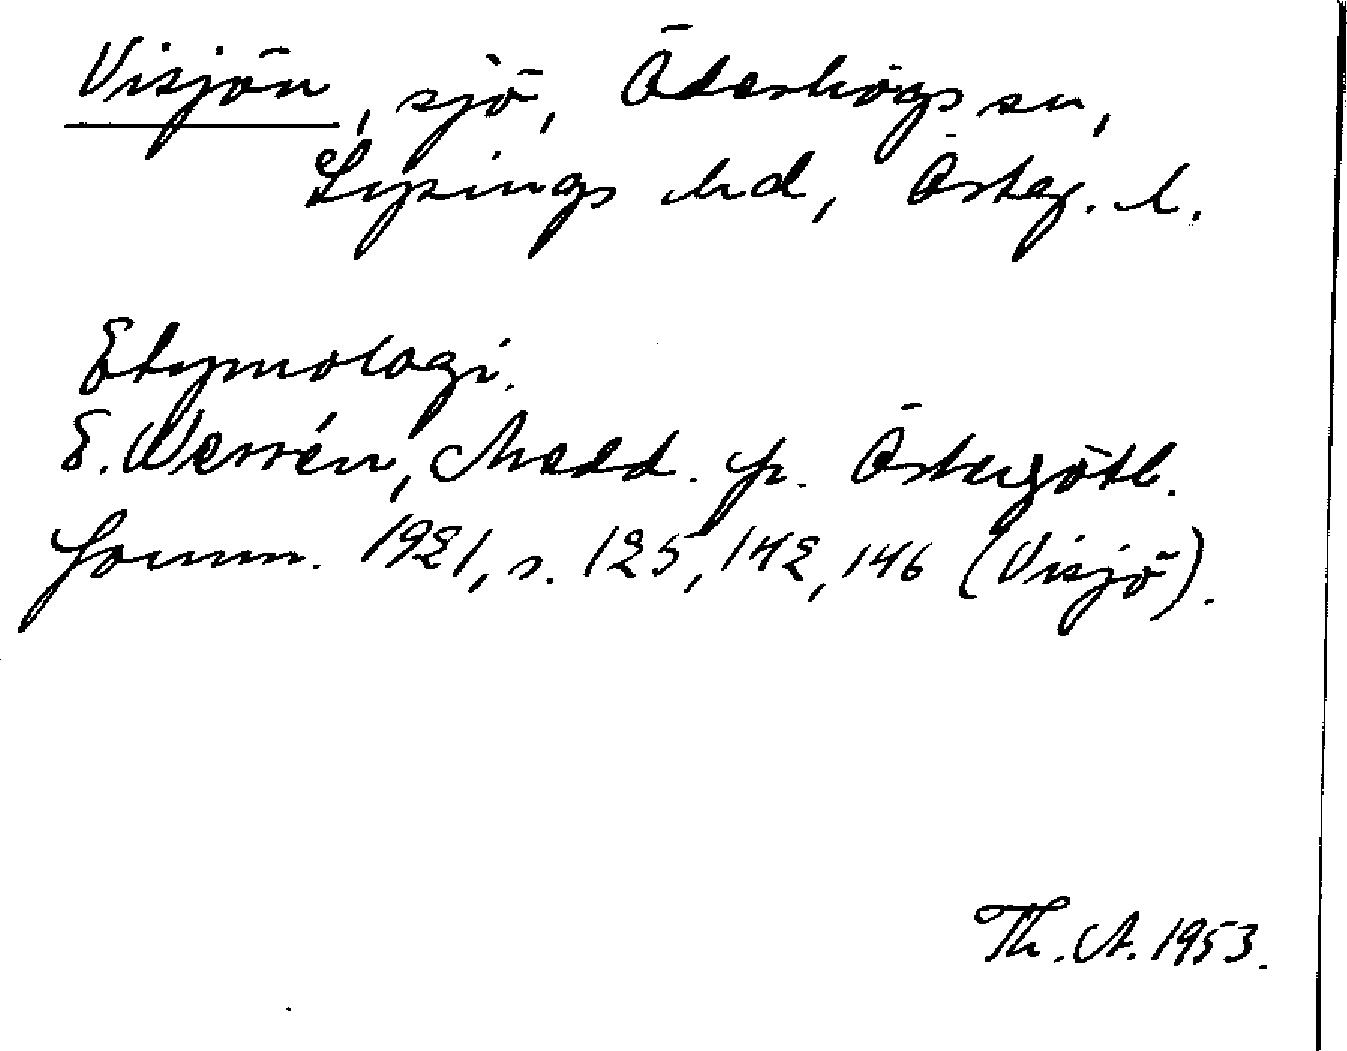 Visjön, sjö, Ödeshögs sn,
Lysings hd, Österg. l.
Etymologi.
E. Wessén, Medd. fr. Östergötl.
fornm. 1921, s. 125, 142, 146 (Visjö).
Th. A. 1953.